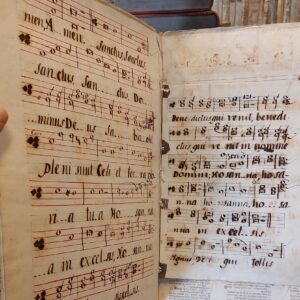 men, A men. Sanctus Sanctus
sanctus, san... ctus, Do...
...minus De us sa... ba...oth
pleni sunt Celi et ter... ra
n...a tu a, Ho... sa,na
...a in excel sis, Ho sanna
excelsis.
Bene dictus qui ve nit, benedi
ctus qui ve nit in nomine
Domini, ho san...na, ho sa
na ho sanna, ho... sa
na in ex cel... sis.
Agnus De i qui tollis